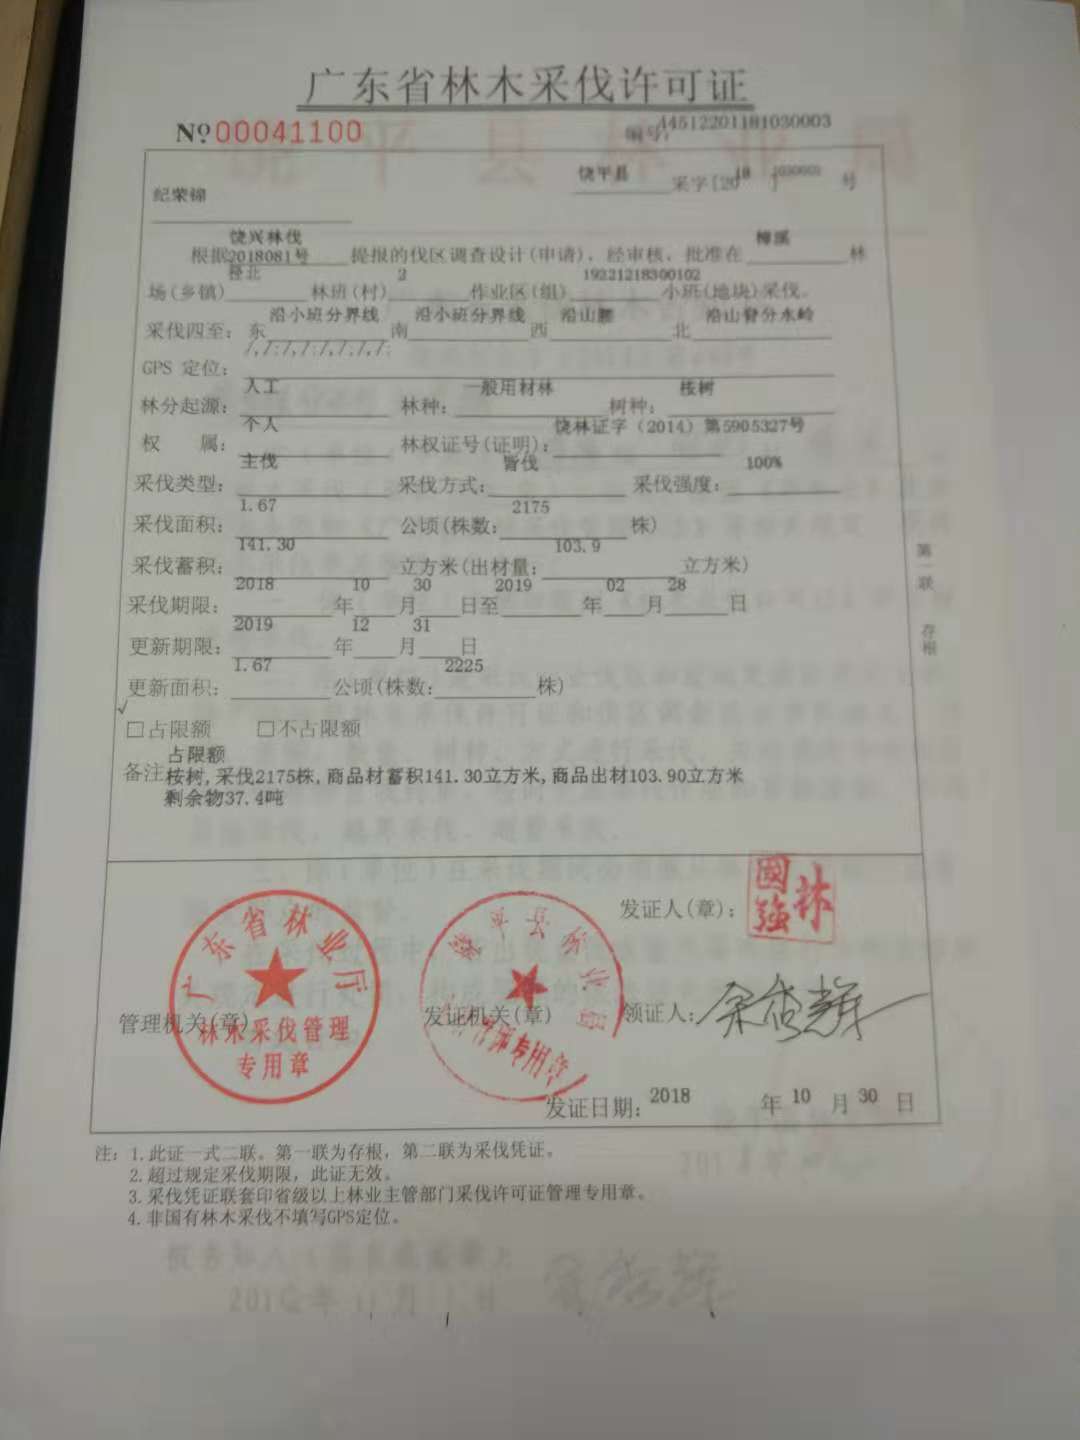 广东省林木采伐许可证
№ 00041100 编号: 44512201181030003
饶平县 采字[2018]1030003 号
纪荣锦
根据饶兴林伐2018081号 提报的伐区调查设计(申请)，经审核，批准在 樟溪 林
场(乡镇) 径北 林班(村) 2 作业区(组) 19221218300102 小班(地块)采伐。
采伐四至： 东 沿小班分界线 南 沿小班分界线 西 沿山腰 北 沿山脊分水岭
GPS 定位： /,/:/,/:/,/,/,/:
林分起源： 人工 林种： 一般用材林 树种： 桉树
权 属： 个人 林权证号(证明)： 饶林证字（2014）第5905327号
采伐类型： 主伐 采伐方式： 皆伐 采伐强度： 100%
采伐面积： 1.67 公顷(株数： 2175 株)
采伐蓄积： 141.30 立方米(出材量： 103.9 立方米)
采伐期限： 2018 年 10 月 30 日至 2019 年 02 月 28 日
更新期限： 2019 年 12 月 31 日
更新面积： 1.67 公顷(株数： 2225 株)
√
□占限额 □不占限额
占限额
备注: 桉树,采伐2175株,商品材蓄积141.30立方米,商品出材103.90立方米
剩余物37.4吨
第一联 存根
发证人(章)： 林國強
广东省林业厅
林木采伐管理
专用章
管理机关(章)
饶平县林业局
专用章
发证机关(章)
领证人:
发证日期: 2018 年 10 月 30 日
注: 1.此证一式二联。第一联为存根，第二联为采伐凭证。
2.超过规定采伐期限，此证无效。
3.采伐凭证联套印省级以上林业主管部门采伐许可证管理专用章。
4.非国有林木采伐不填写GPS定位。